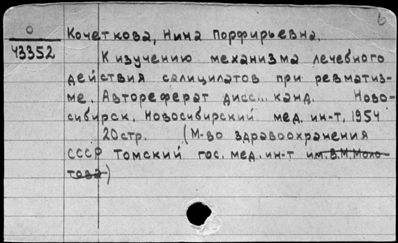 б
О
43352
Кочеткова, Нина Порфирьевна.
К изучению механизма лечебного
действия салицилатов при ревматиз-
ме. Автореферат дисс... канд. Ново-
сибирск. Новосибирский мед. ин-т, 1954
20стр. (М-во здравоохранения
СССР Томский гос. мед. ин-т им. В.М. Моло-
това)